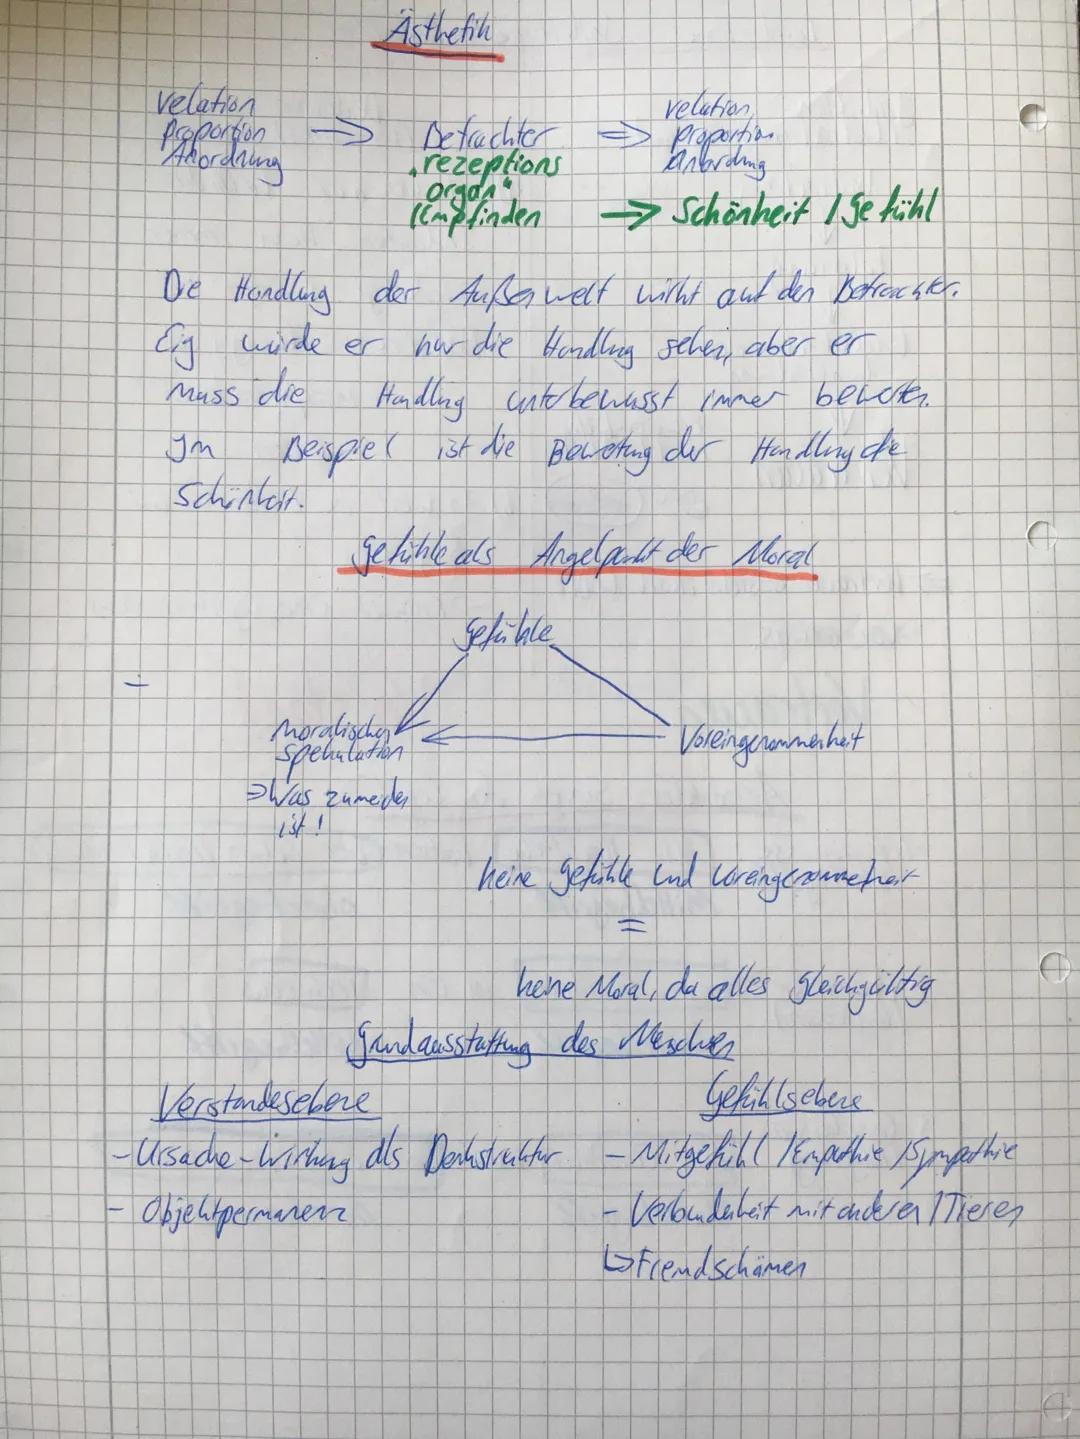 Ästhetik
relation
proportion
Anordnung
=> Betrachter
„rezeptions
organ"
/Empfinden
=> relation
proportion
Anordnung
→ Schönheit / Gefühl
Die Handlung der Außenwelt wirkt auf den Betrachter.
Eig würde er nur die Handlung sehen, aber er
muss die Handlung unterbewusst immer bewerten.
Im Beispiel ist die Bewertung der Handlung die
Schönheit.
Gefühle als Angelpunkt der Moral
Gefühle
Moralischen
spekulation
=> Was zu meiden
ist!
Voreingenommenheit
keine Gefühle und Voreingenommenheit
=
keine Moral, da alles gleichgültig
Grundausstattung des Menschen
Verstandesebene
- Ursache-Wirkung als Denkstruktur
- Objektpermanenz
Gefühlsebene
- Mitgefühl / Empathie / Sympathie
- Verbundenheit mit anderen / Tieren
↳ Fremdschämen